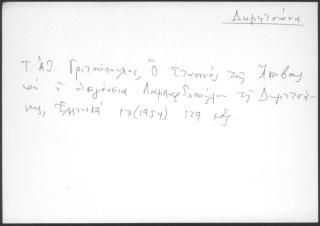 Δημητσάνα
Τ. Ἀθ. Γριτσόπουλος, Ὁ Στασινὸς τῆς Ἄκοβας
καὶ ἡ οἰκογένεια Λαμπαρδοπούλου τῆς Δημητσά-
νης, Ἑλληνικὰ 13 (1954) 129 κἑ.